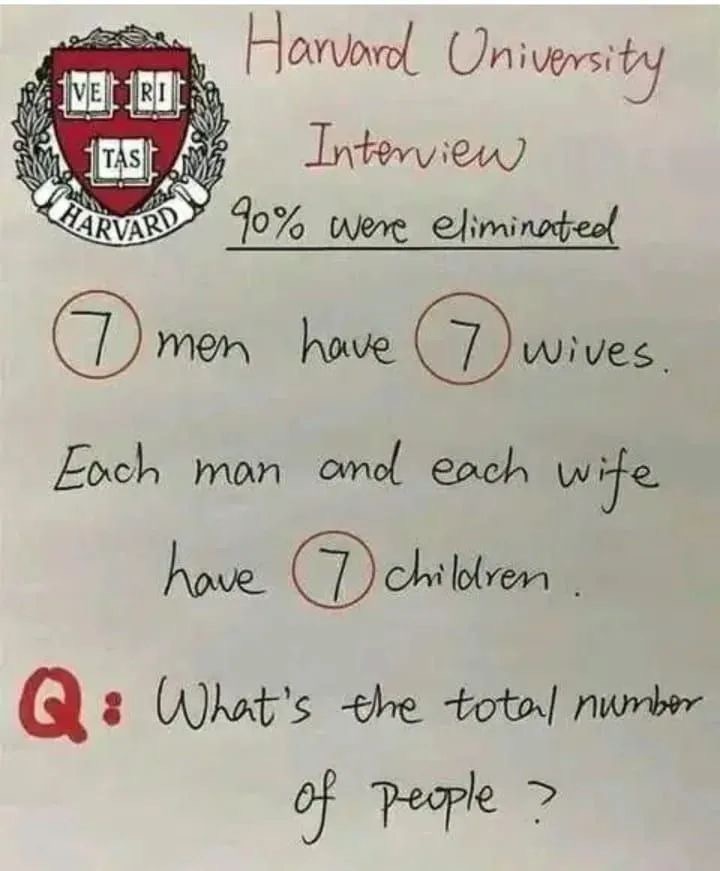 VE RI
TAS
HARVARD
Harvard University
Interview
90% were eliminated
7 men have 7 wives.
Each man and each wife
have 7 children.
Q: What's the total number
of people?